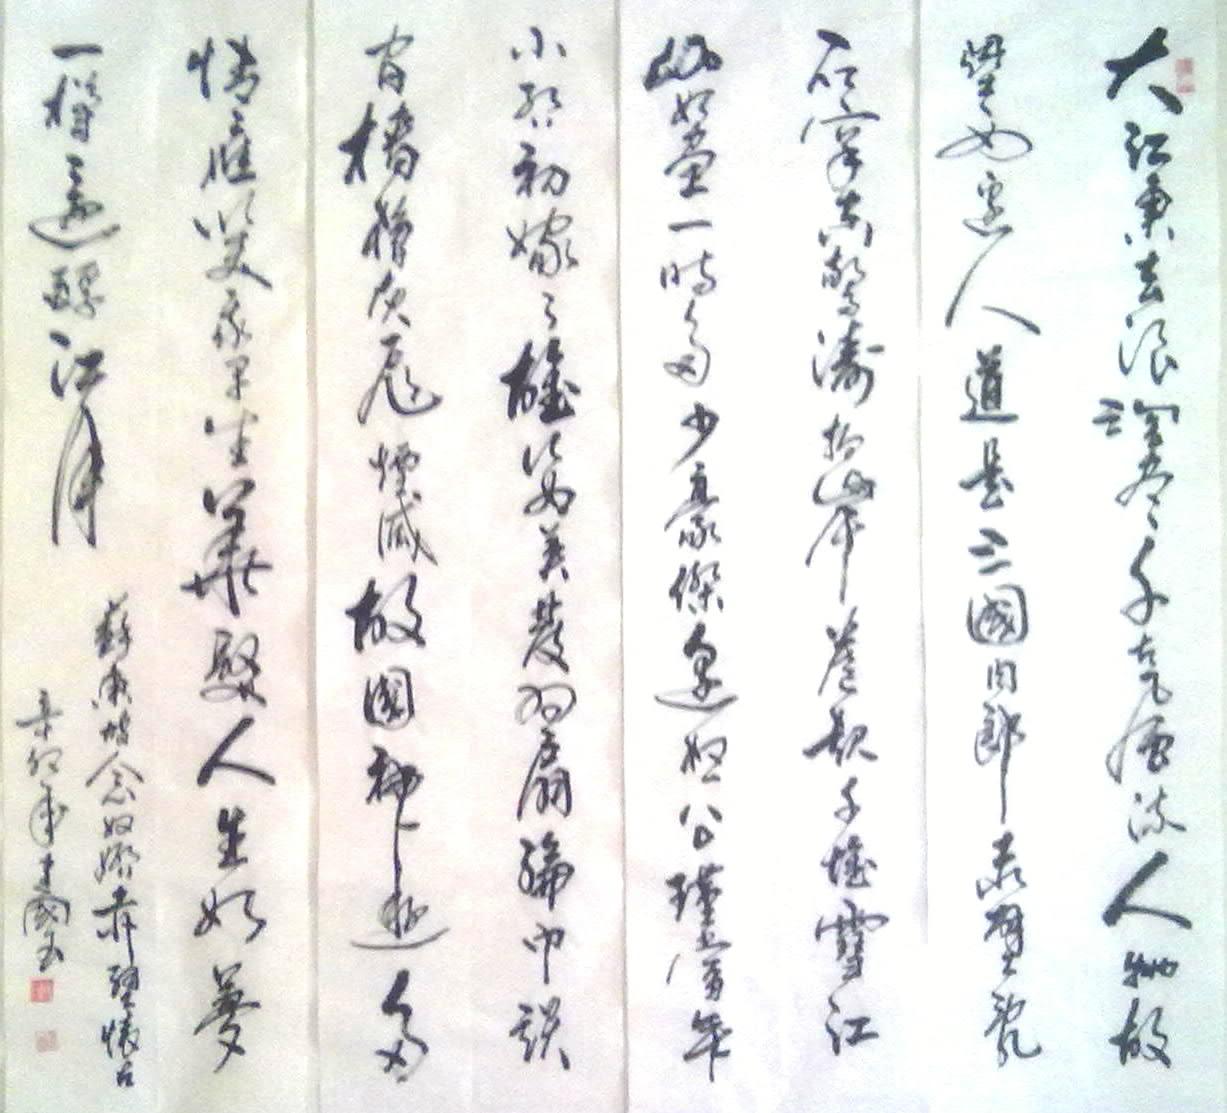 大江東去浪淘盡千古風流人物故
壘西邊人道是三國周郎赤壁亂
石穿空驚濤拍岸卷起千堆雪江
山如畫一時多少豪傑遙想公瑾當年
小喬初嫁了雄姿英發羽扇綸巾談
間檣櫓灰飛煙滅故國神遊多
情應笑我早生華髮人生如夢
一樽還酹江月
蘇東坡念奴嬌赤壁懷古
辛卯年建國書